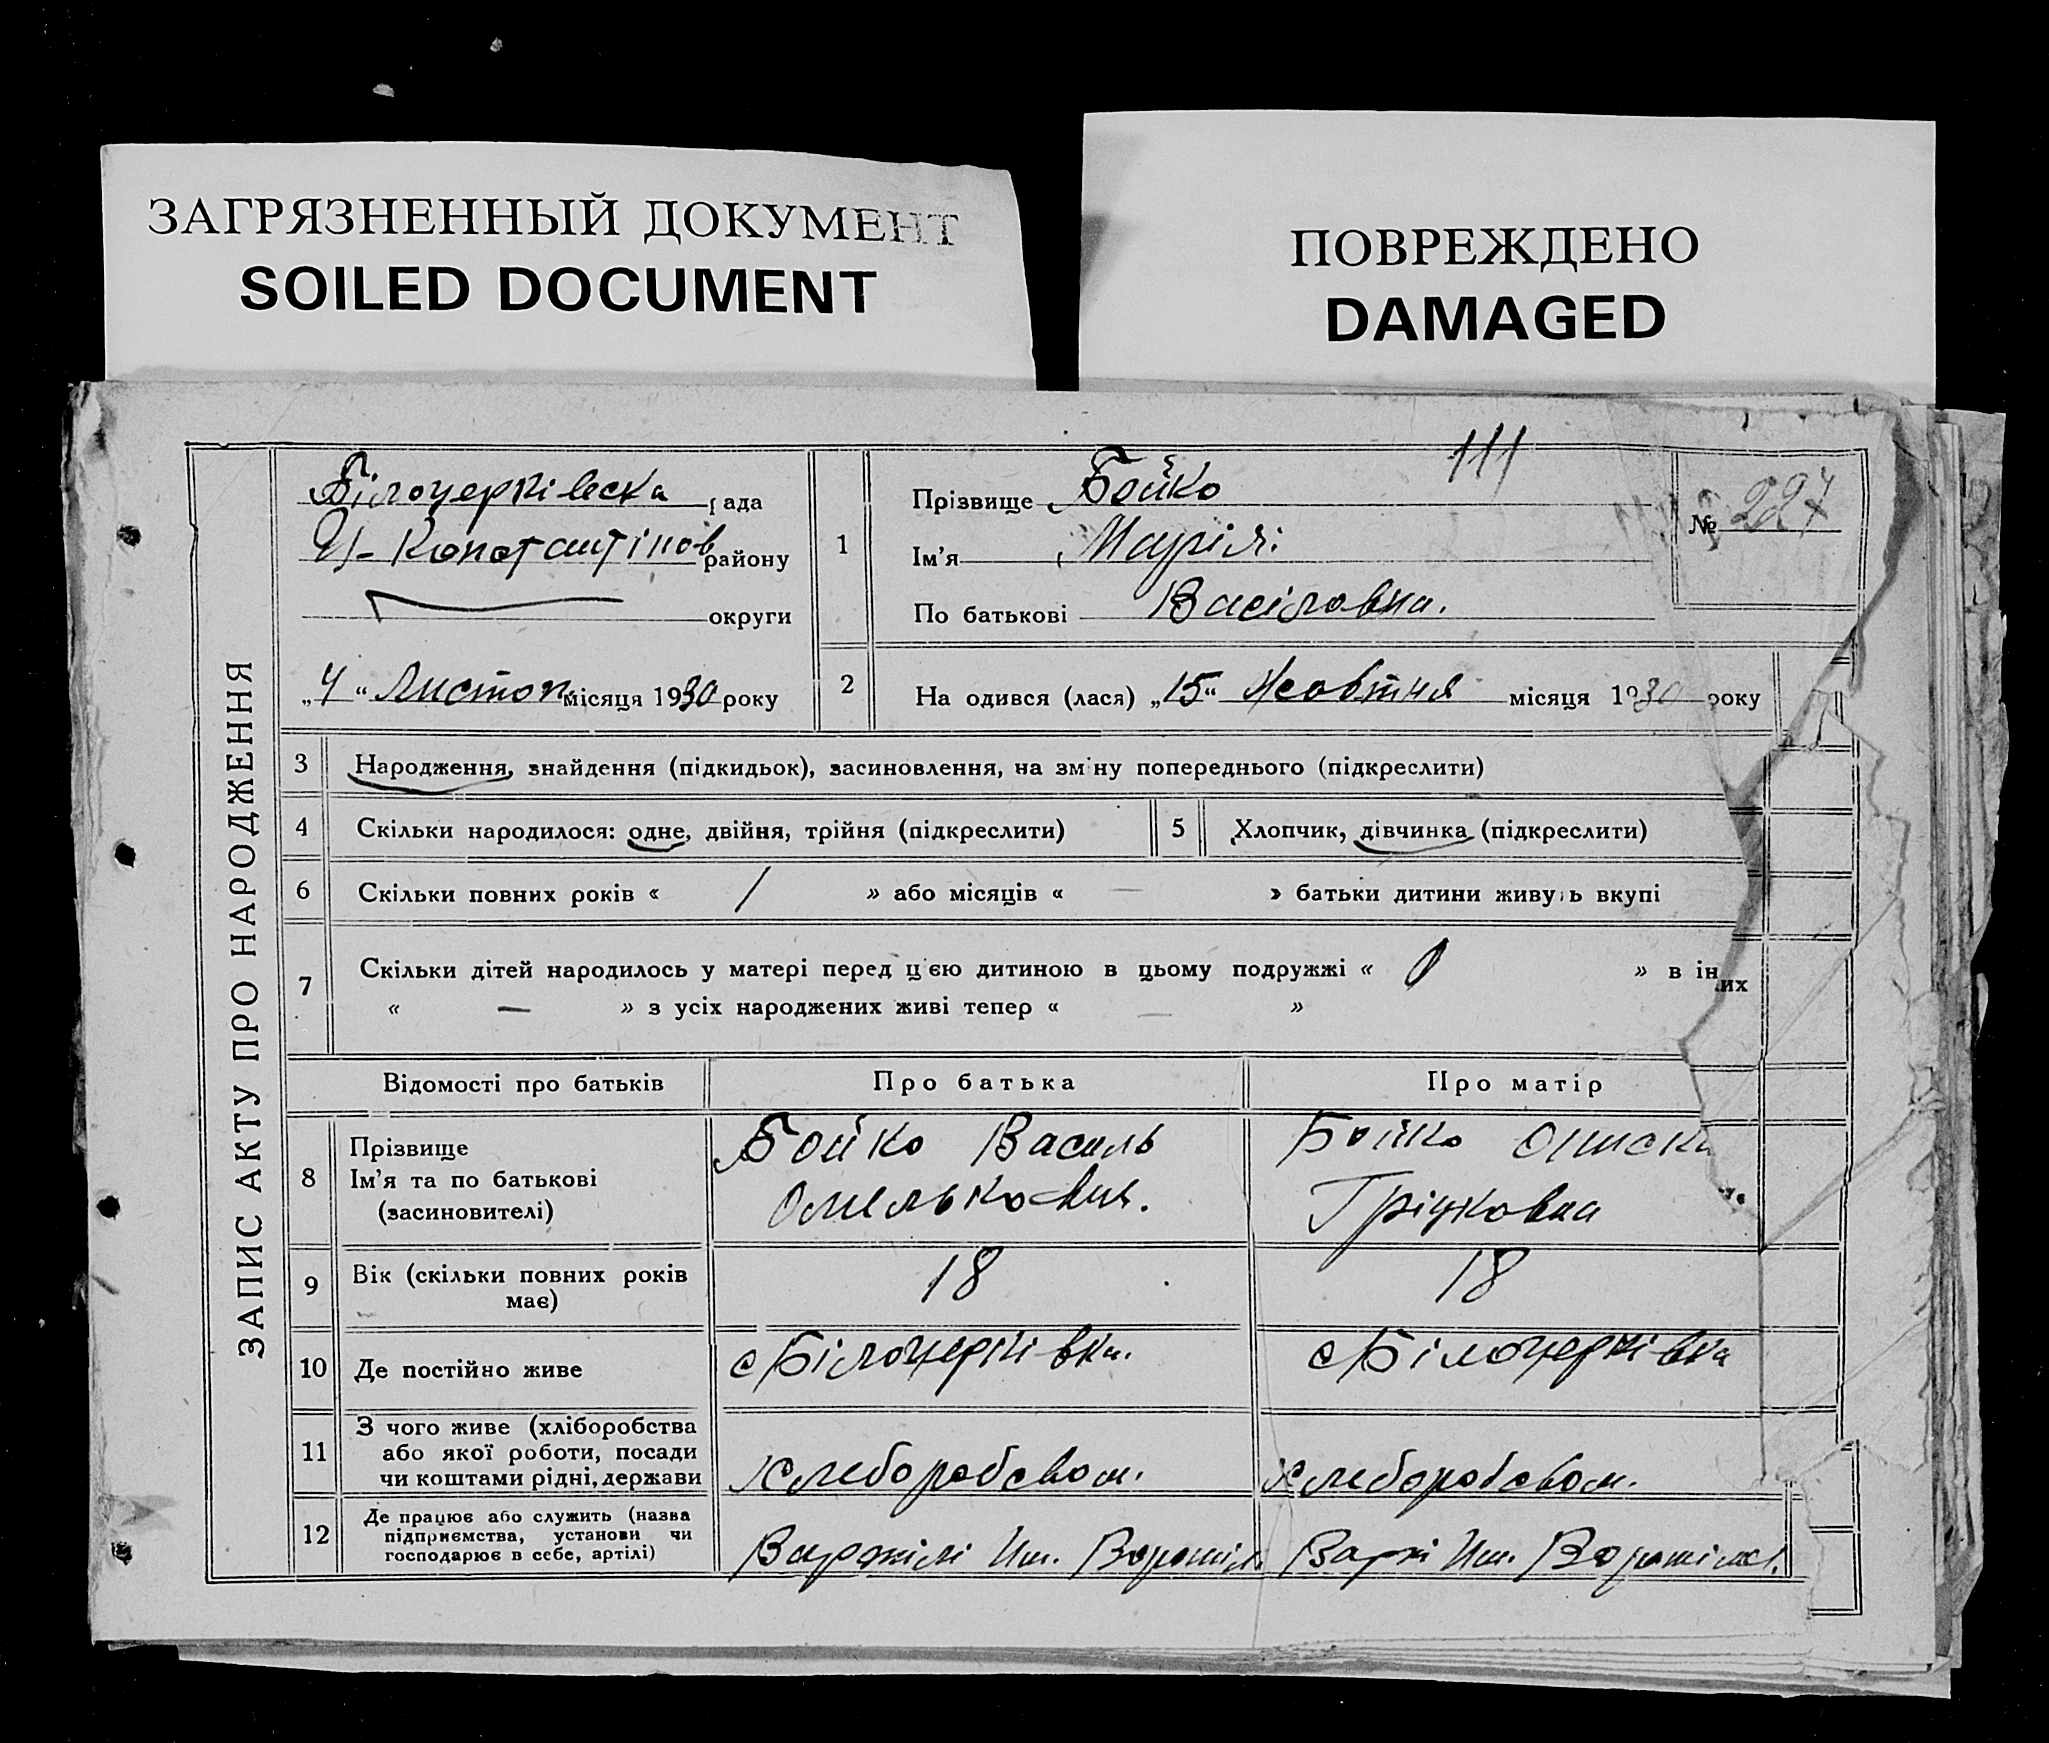 ЗАГРЯЗНЕННЫЙ ДОКУМЕНТ
SOILED DOCUMENT
ПОВРЕЖДЕНО
DAMAGED
111
ЗАПИС АКТУ ПРО НАРОДЖЕННЯ
Білоцерківска рада
району
округи
„4“ Листоп місяця 1930 року
1
Прізвище Бойко
Ім'я Марія
По батькові Васіловна.
№ 227
2 На одився (лася) „15“ Жовтня місяця 1930 року
3 Народження, знайдення (підкидьок), засиновлення, на зміну попереднього (підкреслити)
4 Скільки народилося: одне, двійня, трійня (підкреслити)
5 Хлопчик, дівчинка (підкреслити)
6 Скільки повних років « / » або місяців « — » батьки дитини живуть вкупі
7 Скільки дітей народилось у матері перед цією дитиною в цьому подружжі « 0 » в ін их
« — » з усіх народжених живі тепер « — »
Відомості про батьків Про батька Про матір
8 Прізвище
Ім'я та по батькові
(засиновителі)
Бойко Василь
Омелькович.
Бойко
Гріцковна
9 Вік (скільки повних років
має)
18 18
10 Де постійно живе с Білоцерківка. с Білоцерківка
11 З чого живе (хліборобства
або якої роботи, посади
чи коштами рідні, держави
хлеборобсвом. хлеборобсвом.
12 Де працює або служить (назва
підприємства, установи чи
господарює в себе, артілі)
В артілі Им. Ворошіл. В арт Им. Ворошілов.